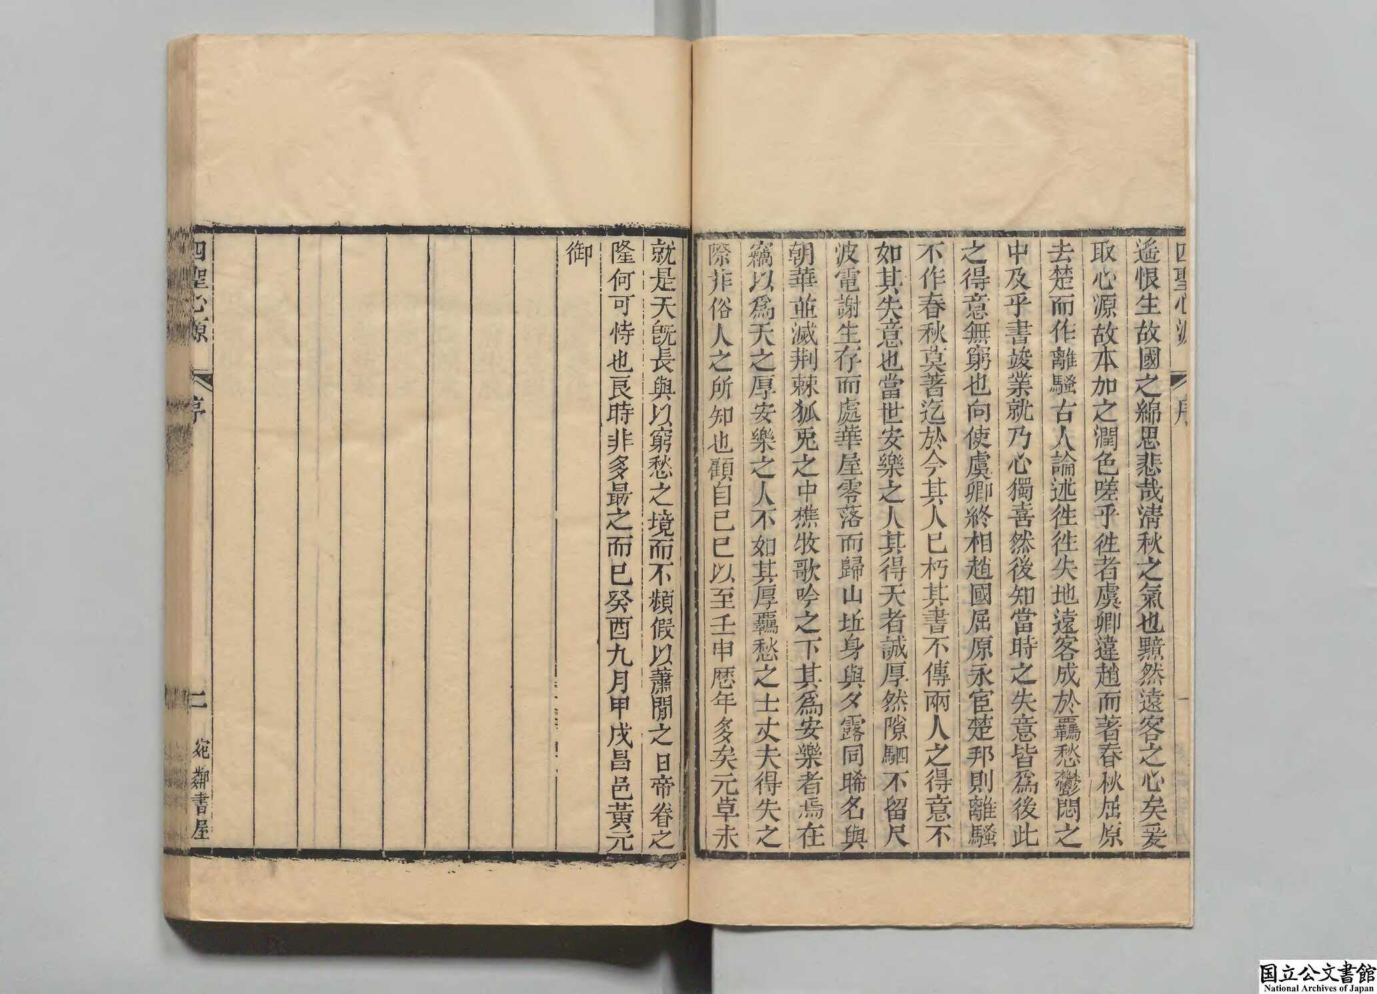 四聖心源
序
遙恨生故國之綿思悲哉清秋之氣也黯然遠客之心矣爰
取心源故本加之潤色嗟乎往者虞卿違趙而著春秋屈原
去楚而作離騷古人論述往往失地遠客成於羈愁鬱悶之
中及乎書竣業就乃心獨喜然後知當時之失意皆爲後此
之得意無窮也向使虞卿終相趙國屈原永宦楚邦則離騷
不作春秋莫著迄於今其人已朽其書不傳兩人之得意不
如其失意也當世安樂之人其得天者誠厚然隙駟不留尺
波電謝生存而處華屋零落而歸山丘身與夕露同晞名與
朝華並滅荆棘狐兎之中樵牧歌吟之下其爲安樂者焉在
竊以爲天之厚安樂之人不如其厚羈愁之士丈夫得失之
際非俗人之所知也顧自己巳以至壬申歷年多矣元草未
就是天既長與以窮愁之境而不頻假以蕭閒之日帝眷之
隆何可恃也良時非多最之而已癸酉九月甲戌昌邑黃元
御
四聖心源
序
二
宛鄰書屋
国立公文書館
National Archives of Japan